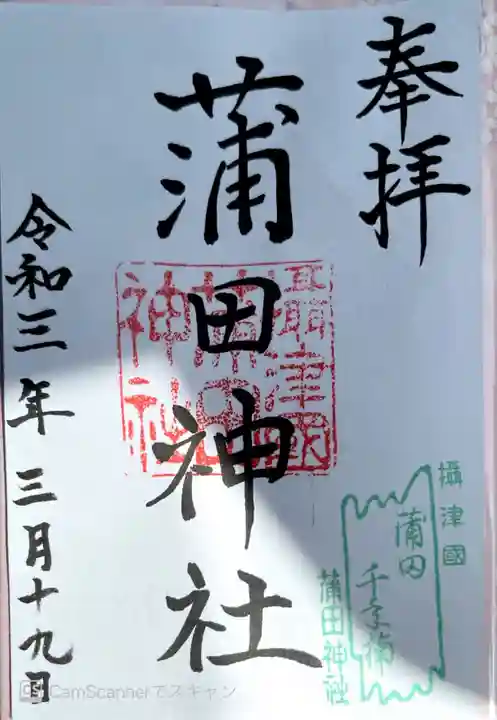 奉拝
蒲田神社
攝津國
蒲田
神社
令和三年三月十九日
攝津國
蒲田
蒲田神社
CamScannerでスキャン